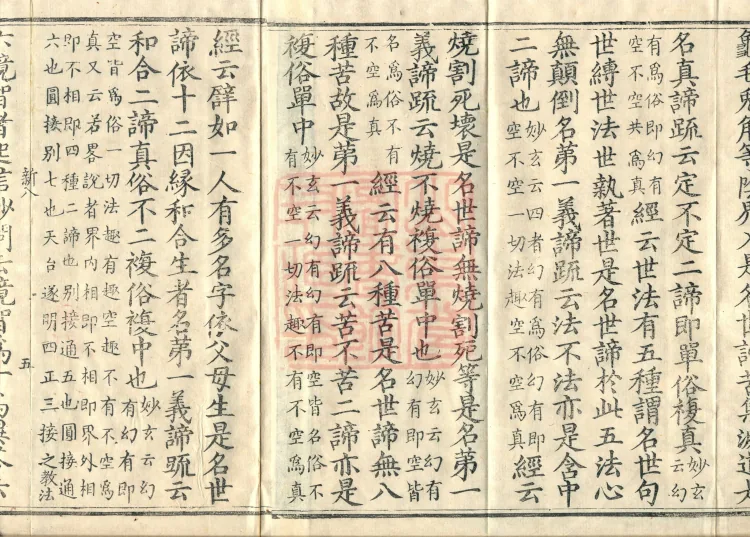 名真諦疏云定不定二諦即單俗複真妙玄
云幻
有爲俗即幻有
空不空共爲真經云世法有五種謂名世句
世縛世法世執著世是名世諦於此五法心
無顛倒名第一義諦疏云法不法亦是含中
二諦也妙玄云四者幻有爲俗幻有即
空不空一切法趣空不空爲真經云
燒割死壞是名世諦無燒割死等是名第一
義諦疏云燒不燒複俗單中也妙玄云幻有
幻有即空皆
名爲俗不有
不空爲真經云有八種苦是名世諦無八
種苦故是第一義諦疏云苦不苦二諦亦是
複俗單中妙玄云幻有幻有即空皆名俗不
有不空一切法趣不有不空爲真
經云譬如一人有多名字依父母生是名世
諦依十二因緣和合生者名第一義諦疏云
和合二諦真俗不二複俗複中也妙玄云幻
有幻有即
空皆爲俗一切法趣有趣空趣不有不空爲
真又云若畧說者界内相即不相即界外相
即不相即四種二諦也別接通五也圓接通
六也圓接別七也天台遂明四正三接之教法
新八
五